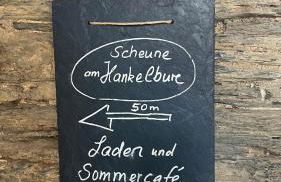 Scheune
am Hankelbure
50m
Laden und
Sommercafé